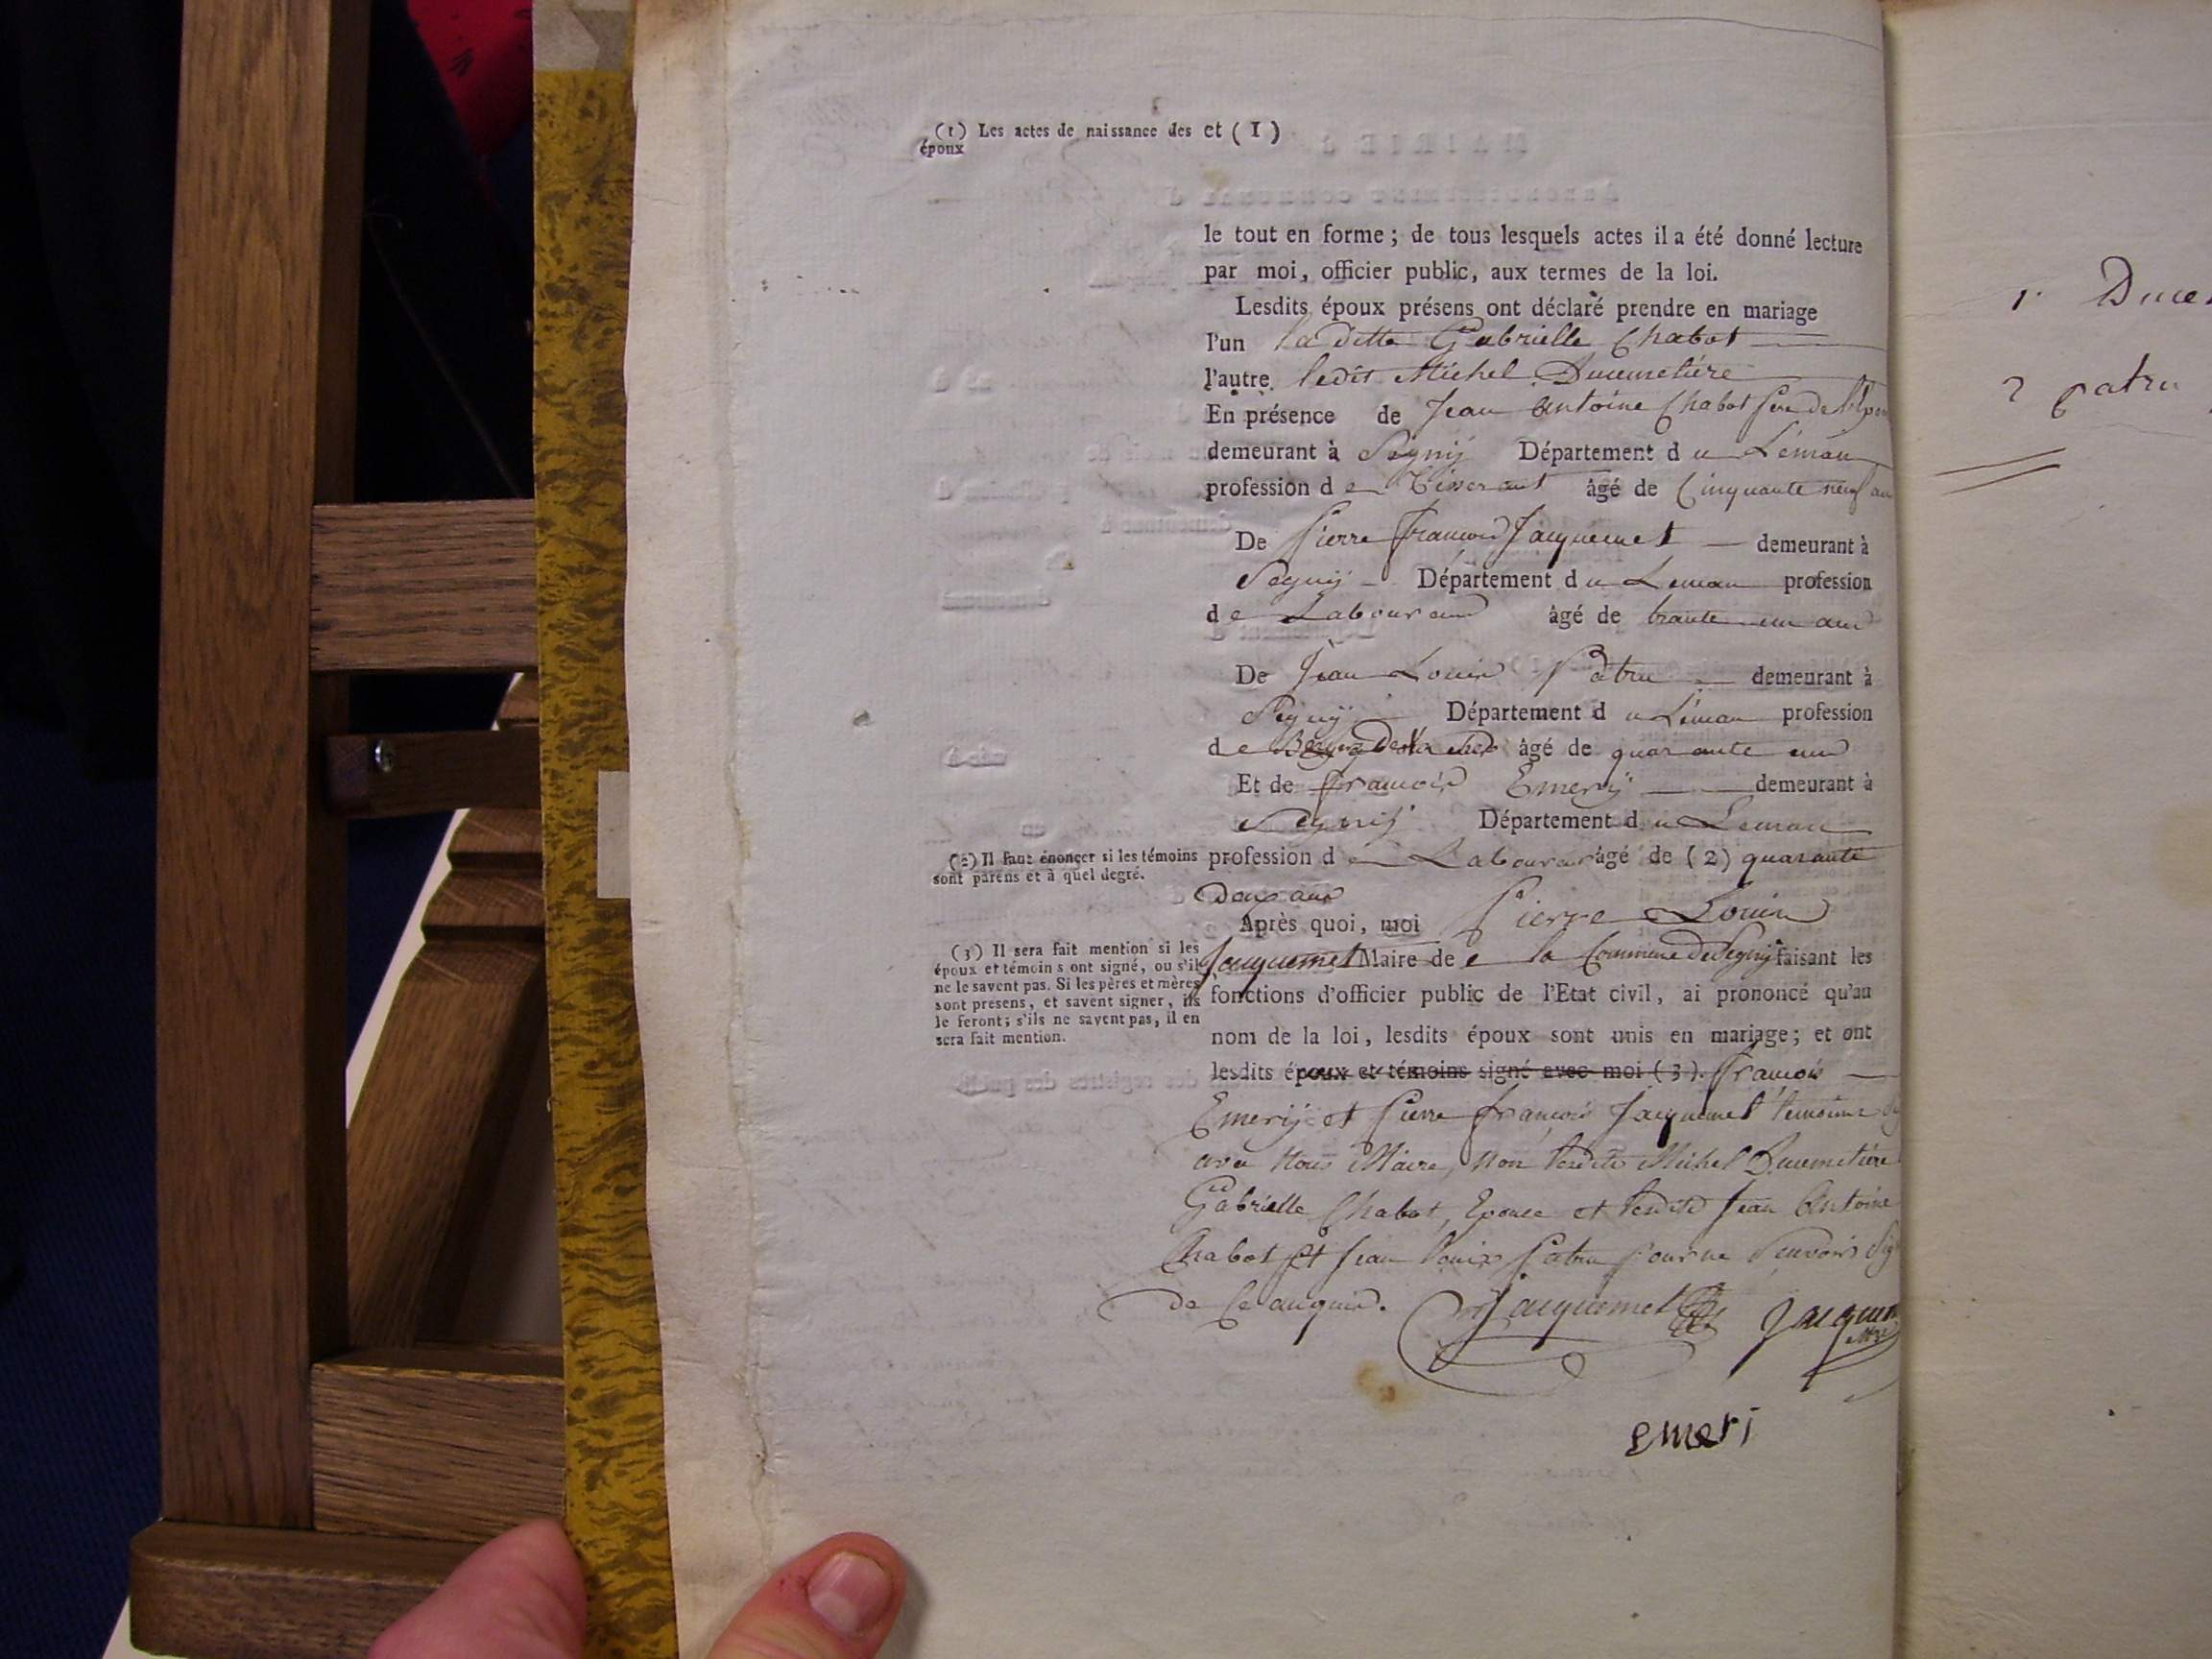 (1) Les actes de naissance des
époux
et (1)
le tout en forme ; de tous lesquels actes il a été donné lecture
par moi, officier public, aux termes de la loi.
Lesdits époux présens ont déclaré prendre en mariage
l'un la ditte Gabrielle Chabot
l'autre ledit Michel Ducimetiére
En présence de Jean Antoine Chabot pere de
demeurant à Segnÿ Département du Léman
profession de Tisserant âgé de Cinquante neuf an
De Pierre francois Jacquemet demeurant à
Segnÿ Département du Leman profession
de Laboureur âgé de trante un ans
De Jean Louis Patru demeurant à
Segnÿ Département du Léman profession
de âgé de quarante un
Et de francois Emerÿ demeurant à
Segnÿ Département du Leman
(2) Il faut énoncer si les témoins
sont parens et à quel degré.
profession de Laboureur âgé de (2) quarante
deux ans
Après quoi, moi Pierre Louis
Jacquemet Maire de la Commune de Segnÿ faisant les
(3) Il sera fait mention si les
époux et témoins ont signé, ou s'ils
ne le savent pas. Si les pères et mères
sont présens, et savent signer, ils
le feront ; s'ils ne savent pas, il en
sera fait mention.
fonctions d'officier public de l'Etat civil, ai prononcé qu'au
nom de la loi, lesdits époux sont unis en mariage ; et ont
lesdits époux et témoins signé avec moi (3). francois
Emerÿ et Pierre francois Jacquemet temoins
avec Nous Maire, Non lesdits Michel Ducimetiére
Gabrielle Chabot, Epouse et lesdits Jean Antoine
Chabot Et Jean Louis Patru pour ne Savoir Sig
de ce Requis.
Jacquemet Jacquem
Emeri
1. Duce
2 patru